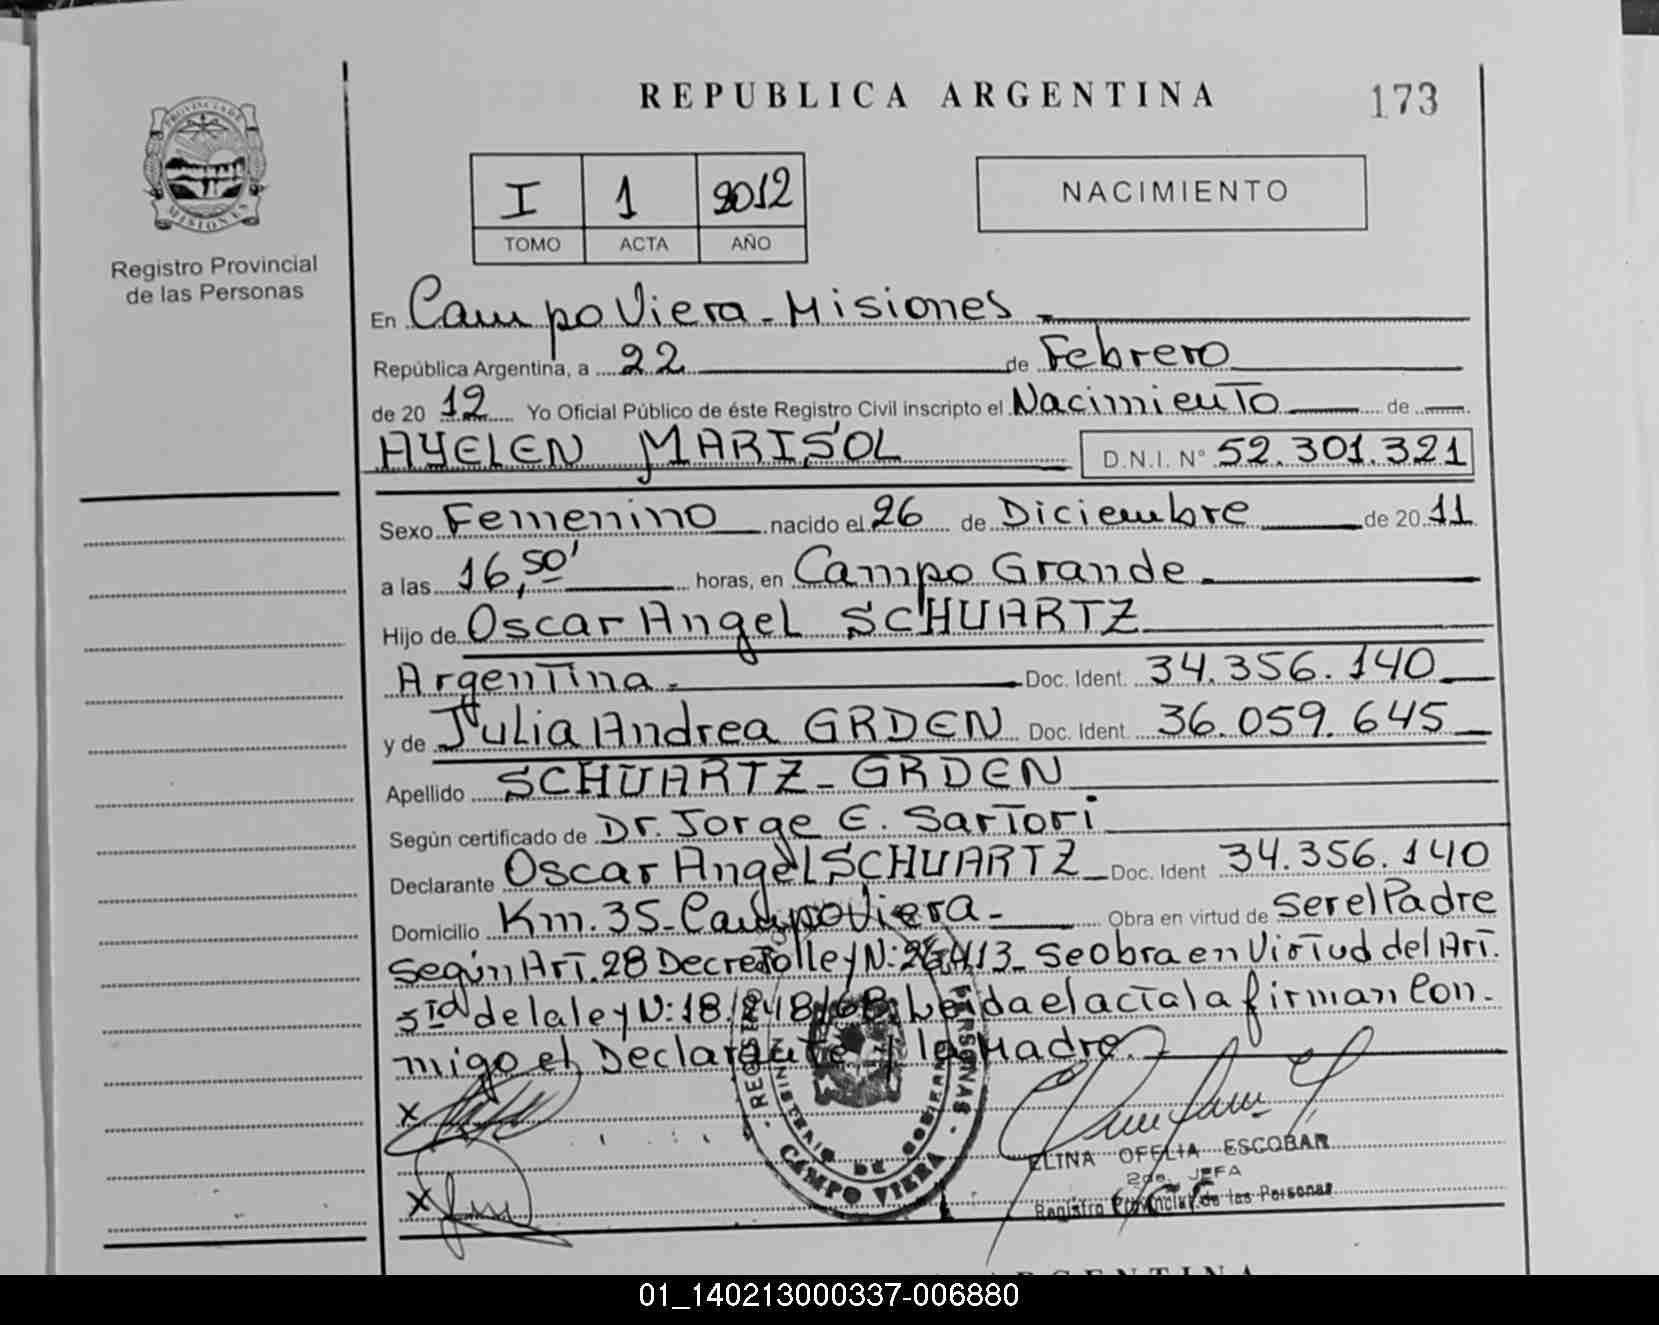 REPUBLICA ARGENTINA
173
PROVINCIA DE
MISIONES
Registro Provincial
de las Personas
I 1 2012
TOMO ACTA AÑO
NACIMIENTO
En Campo Viera - Misiones
República Argentina, a 22 de Febrero
de 20 12 Yo Oficial Público de éste Registro Civil inscripto el Nacimiento de
AYELEN MARISOL D.N.I. N° 52.301.321
Sexo Femenino nacido el 26 de Diciembre de 20 11
a las 16,50' horas, en Campo Grande
Hijo de Oscar Angel SCHUARTZ
Argentina.- Doc. Ident. 34.356.140
y de Julia Andrea GRDEN Doc. Ident. 36.059.645
Apellido SCHUARTZ - GRDEN
Según certificado de Dr. Jorge E. Sartori
Declarante Oscar Angel SCHUARTZ Doc. Ident 34.356.140
Domicilio Km. 35 - Campo Viera - Obra en virtud de ser el Padre
según Art. 28 Decreto lley N: 26413 - Se obra en Virtud del Art.
5to de la ley N: 18.248/68. Leida el acta la firman Con-
migo el Declarante y la Madre.
X
X
REGISTRO PERSONAS
MINISTERIO DE GOBIERNO
CAMPO VIERA
ELINA OFELIA ESCOBAR
2da. JEFA
Registro Provincial de las Personas
ARGENTINA
01_140213000337-006880